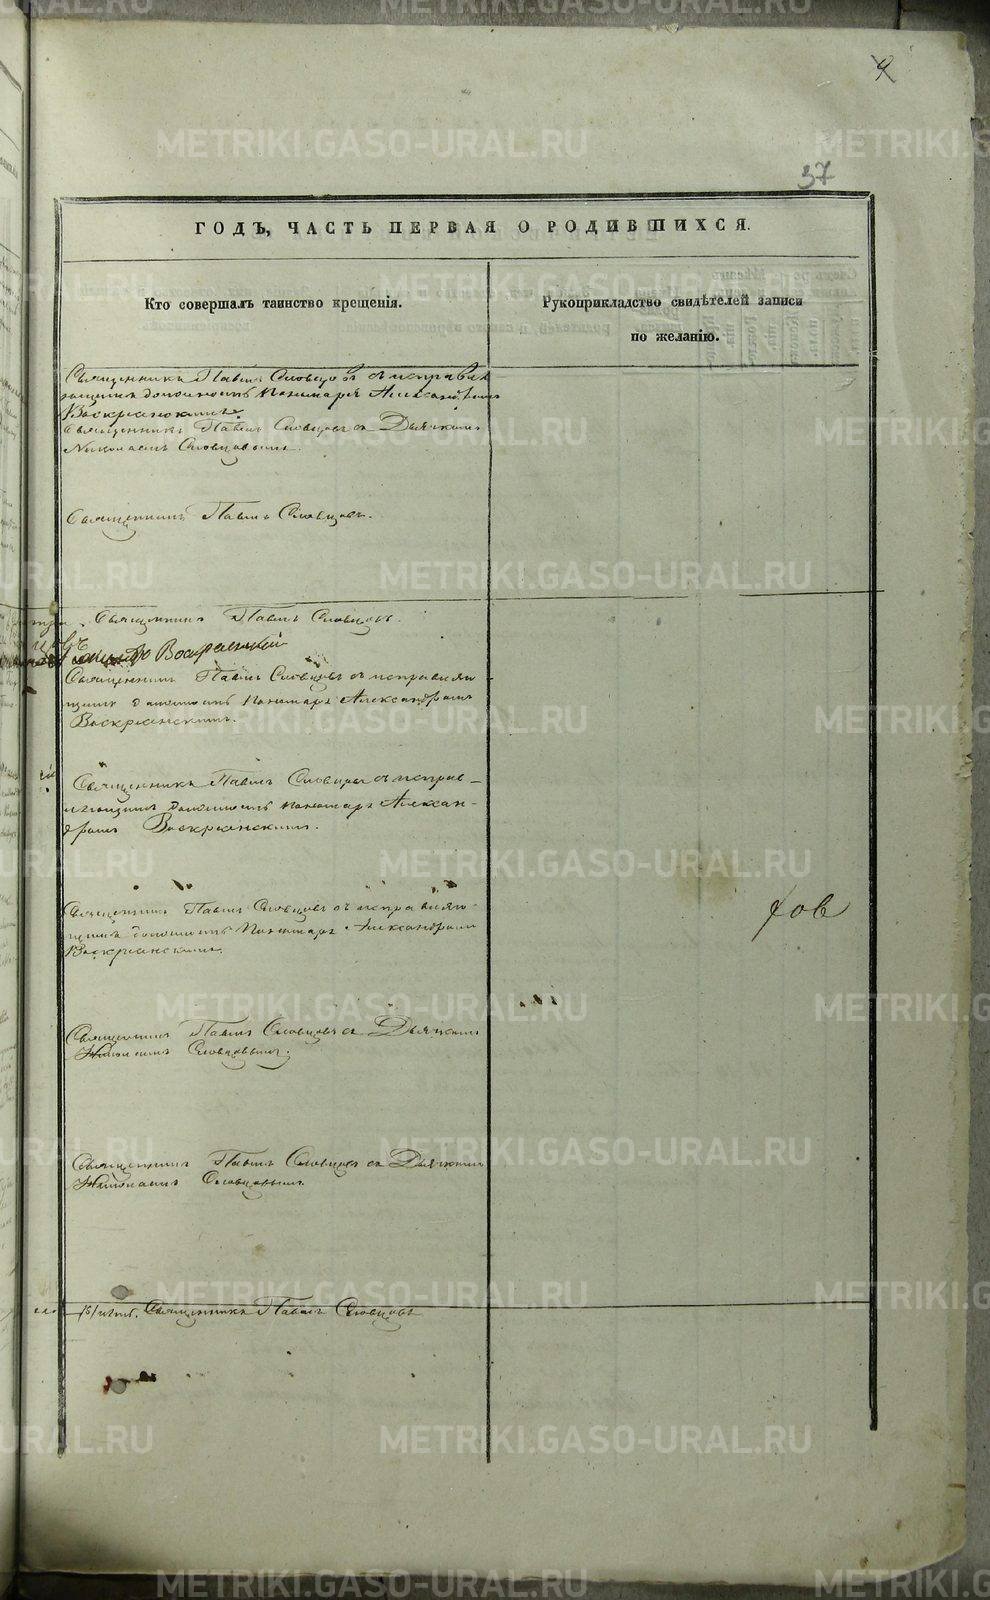 9
37
ГОДЪ, ЧАСТЬ ПЕРВАЯ О РОДИВШИХСЯ.
Кто совершалъ таинство крещенія.
Рукоприкладство свидѣтелей записи
по желанію.
Священникъ Павелъ Словцовъ съ исправля
ющимъ должность пономаря Александромъ
Воскресенскимъ.
Священникъ Павелъ Словцовъ съ Дьячкомъ
Николаемъ Словцовымъ.
Священникъ Павелъ Словцовъ.
Священникъ Павелъ Словцовъ.
Воскресенскій
Священникъ Павелъ Словцовъ съ исправляю
щимъ должность пономаря Александромъ
Воскресенскимъ.
Священникъ Павелъ Словцовъ съ исправ-
ляющимъ должность пономаря Алексан-
дромъ Воскресенскимъ.
Священникъ Павелъ Словцовъ съ исправляю-
щимъ должность пономаря Александромъ
Воскресенскимъ.
ковъ
Священникъ Павелъ Словцовъ съ Дьячкомъ
Николаемъ Словцовымъ.
Священникъ Павелъ Словцовъ съ Дьячкомъ
Николаемъ Словцовымъ.
Священникъ Павелъ Словцовъ
METRIKI.GASO-URAL.RU